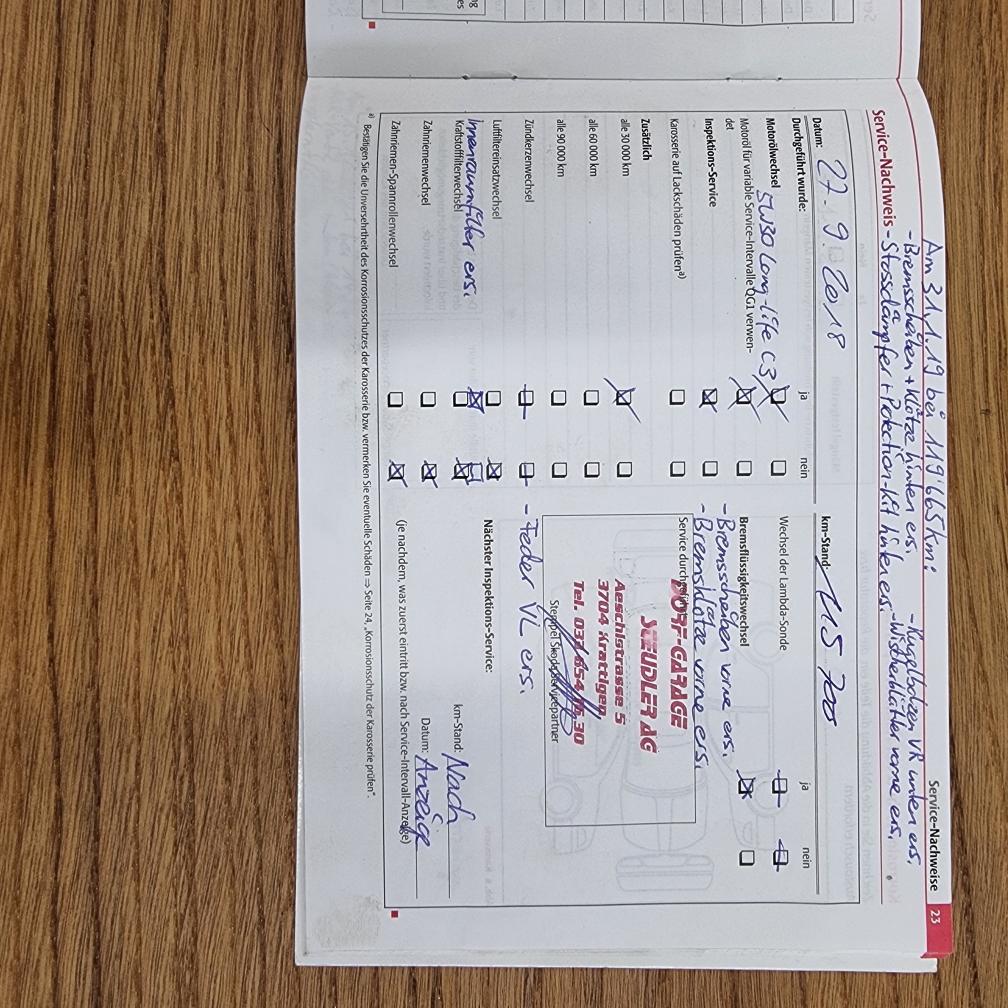 Am 31.1.19 bei 119'665km:
- Bremsscheiben + Klötze hinten ers.
- Kugelbolzen VR unten ers.
- Stossdämpfer + Protection-Kit hinten ers.
- Wischerblätter vorne ers.
Service-Nachweise 23
Service-Nachweis
Datum: 27. 9. 2018
km-Stand: 115 700
Durchgeführt wurde: ja nein
Motorölwechsel 5W30 Long-life C3
Motoröl für variable Service-Intervalle QG1 verwen-
det
Inspektions-Service
Karosserie auf Lackschäden prüfen a)
Zusätzlich
alle 30 000 km
alle 60 000 km
alle 90 000 km
Zündkerzenwechsel
Luftfiltereinsatzwechsel
Innenraumfilter ers.
Kraftstofffilterwechsel
Zahnriemenwechsel
Zahnriemen-Spannrollenwechsel
ja nein
Wechsel der Lambda-Sonde
Bremsflüssigkeitswechsel
- Bremsscheiben vorne ers.
- Bremsklötze vorne ers.
Service durchgeführt
DORF-GARAGE
STEUDLER AG
Aeschistrasse 5
3704 Krattigen
Tel. 033 654 30
Stempel Škoda Servicepartner
- Feder VL ers.
Nächster Inspektions-Service:
km-Stand: Nach
Datum: Anzeige
(je nachdem, was zuerst eintritt bzw. nach Service-Intervall-Anzeige)
a) Bestätigen Sie die Unversehrtheit des Korrosionsschutzes der Karosserie bzw. vermerken Sie eventuelle Schäden ⇒ Seite 24, „Korrosionsschutz der Karosserie prüfen".